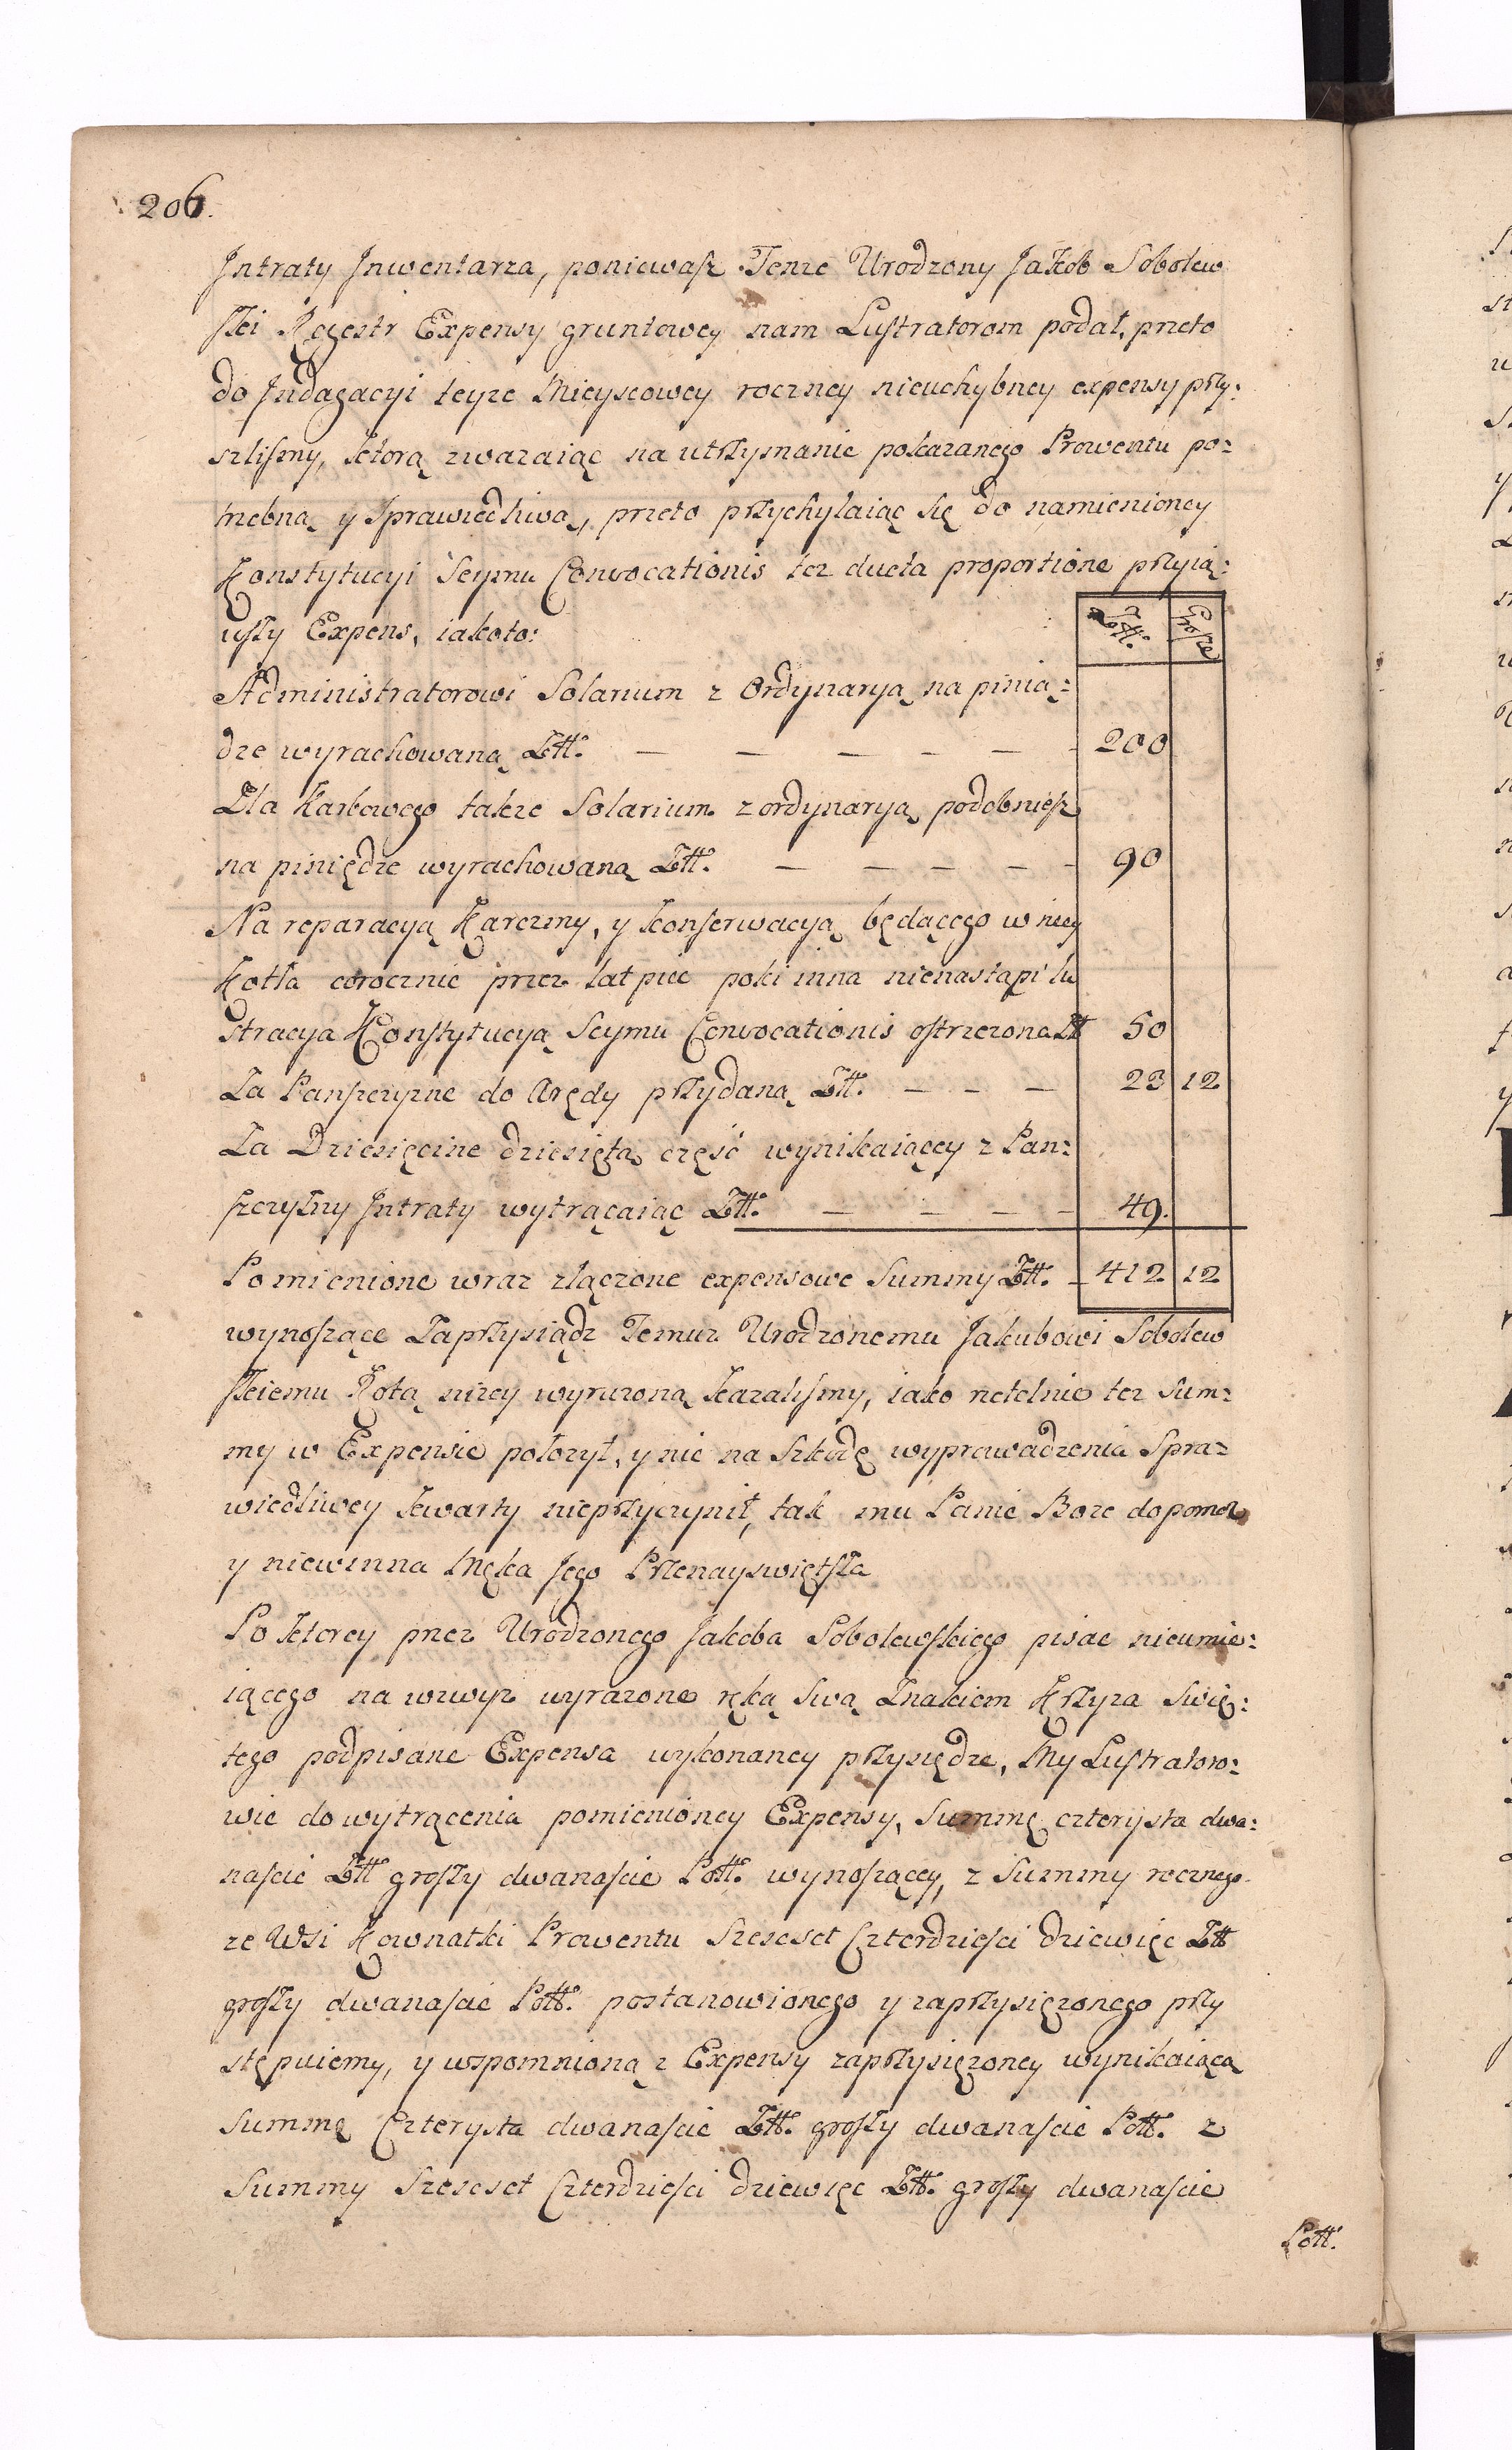 206.
Jntraty Jnwentarza, poniewasz Tenze Urodzony Jakob Sobolew
ski Regestr Expensy gruntowey nam Lustratorom podał, przeto
do Jndagacyi teyze Mieyscowey roczney nieuchybney expensy przy:
szlismy, ktorą zwazaiąc na utrzymanie pokazanego Prowentu po:
trzebną y sprawiedliwą, przeto przychylaiąc się do namienioney
Konstytucyi Seymu Convocationis tez ducta proportione przyią:
wszy Expens, iakoto:
Złł. Grosze
Administratorowi Solarium z Ordynaryą na pinią:
dze wyrachowaną Złł. — — — — — — 200
Dla Karbowego takze Solarium z ordynaryą podobniesz
na piniędze wyrachowaną Złł. — — — — — 90
Na reparacyą Karczmy, y konserwacyą będącego w niey
Kotła corocznie przez lat pięc poki inna nienastąpi lu
stracya Konstytucyą Seymu Convocationis ostrzezona Złł 50
Za Panszczyzne do Arędy przydaną Złł. — — — 23 12
Za Dziesięcine dziesiętą część wynikaiącey z Pan:
szczyzny Jntraty wytrącaiąc Złł. — — — — 49.
Pomienione wraz złączone expensowe Summy Złł. - 412 12
wynoszące Zaprzysiądz Temuz Urodzonemu Jakubowi Sobolew
skiemu Rotą nizey wyrazoną kazalismy, iako rzetelnie tez Sum:
my w Expensie połozył, y nic na Szkodę wyprowadzenia Spra:
wiedliwey kwarty nieprzyczynił, tak mu Panie Boze dopomoz
y niewinna Męka Jego Przenayswiętsza
Po ktorey przez Urodzonego Jakoba Sobolewskiego pisac nieumie:
iącego na wzwyz wyrazone ręką swą Znakiem Krzyza Swię:
tego podpisane Expensa wykonaney przysiędze, My Lustratoro:
wie do wytrącenia pomienioney Expensy, Summę czterysta dwa:
nascie Złł groszy dwanascie Poll. wynoszącey, z Summy rocznego
ze Wsi Kownatki Prowentu Szescset Czterdziesci dziewięc Złł
groszy dwanascie Poll. postanowionego y zaprzysięzonego przy
stępuiemy, y wspomnioną z Expensy zaprzysięzoney wynikaiącą
Summę Czterysta dwanascie Złł. groszy dwanascie Poll. z
Summy Szescset Czterdziesci dziewięc Złł. groszy dwanascie
Poll.